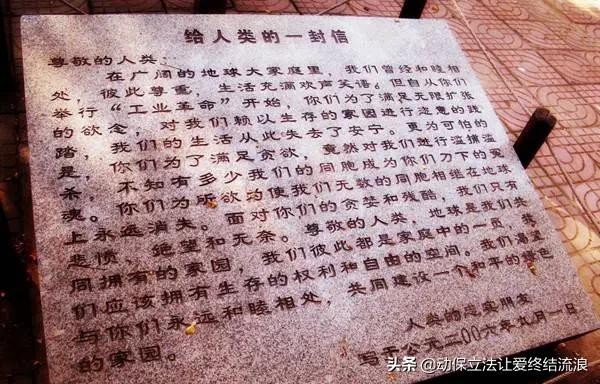 给人类的一封信
尊敬的人类：
在广阔的地球大家庭里，我们曾经和睦相
处，彼此尊重，生活充满欢声笑语。但自从你们
举行“工业革命”开始，你们为了满足无限扩张
的欲念，对我们赖以生存的家园进行恣意的践
踏，我们的生活从此失去了安宁。更为可怕的
是，你们为了满足贪欲，竟然对我们进行滥捕滥
杀，不知有多少我们的同胞成为你们刀下的冤
魂。你们为所欲为使我们无数的同胞相继在地球
上永远消失。面对你们的贪婪和残酷，我们只有
悲愤，绝望和无奈。尊敬的人类，地球是我们共
同拥有的家园，我们彼此都是家庭中的一员，我
们应该拥有生存的权利和自由的空间。我们渴望
与你们永远和睦相处，共同建设一个和平的绿色
的家园。
人类的忠实朋友
写于公元二00六年九月一日
头条 @动保立法让爱终结流浪